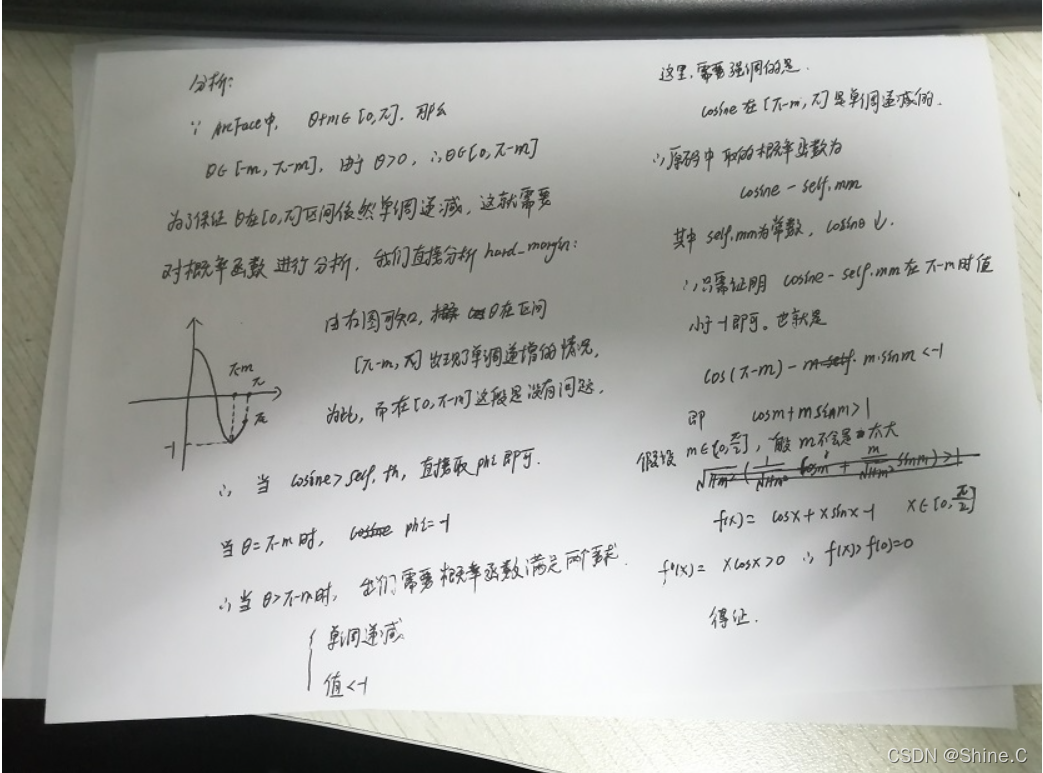 分析:
∵ ArcFace中, θ+m∈[0,π], 那么
θ∈[-m, π-m], 由于 θ>0, ∴θ∈[0,π-m]
为了保证 θ在[0,π]区间依然单调递减, 这就需要
对概率函数进行分析, 我们直接分析 hard_margin:
由右图可知, θ在区间
[π-m, π] 出现了单调递增的情况,
为此, 而在[0,π-m]这段是没有问题.
π-m
π
-1
∴ 当 cosine>self.th, 直接取phi即可.
当θ=π-m时, phi=-1
∴当θ>π-m时, 我们需要概率函数满足两个要求.
单调递减
值<-1
这里, 需要强调的是.
cosine在[π-m, π]是单调递减的.
∴源码中取的概率函数为
cosine - self.mm
其中 self.mm为常数, cosθ↓.
∴只需证明 cosine - self.mm 在π-m时值
小于-1即可。也就是
cos(π-m) - m·sinm < -1
即 cosm+msinm>1
假设 m∈[0,π/2], 一般m不会是太大
f(x)= cosx+xsinx-1 x∈[0,π/2]
f'(x)= xcosx>0 ∴f(x)>f(0)=0
得证.
CSDN @Shine.C